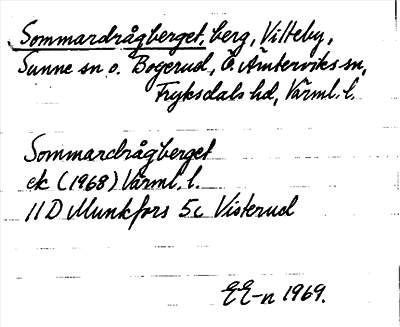 Sommardrågberget, berg, Vitteby,
Sunne sn o. Bogerud, Ö. Ämterviks sn,
Fryksdals hd, Värml. l.
Sommardrågberget
ek (1968) Värml. l.
11D Munkfors 5c Visterud
EE-n 1969.